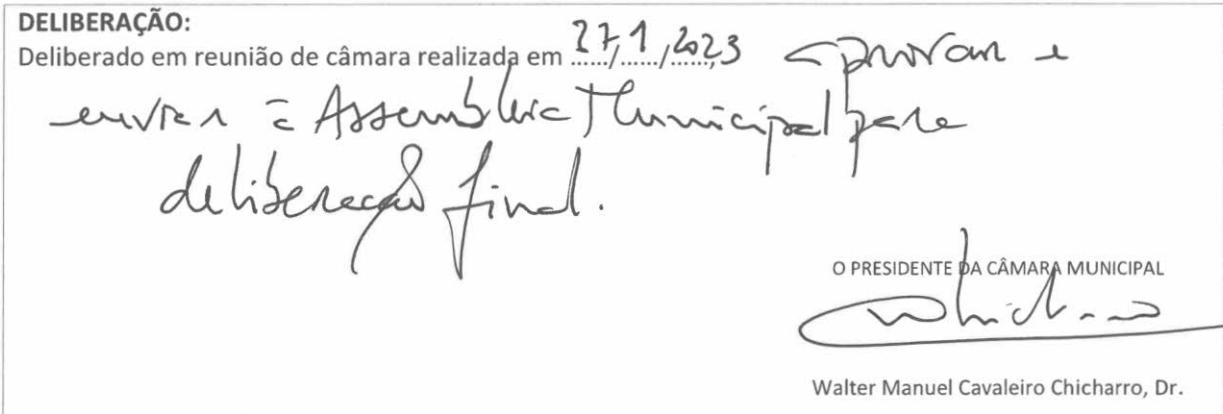 DELIBERAÇÃO:
Deliberado em reunião de câmara realizada em 27/1/2023 aprovar e
enviar à Assembleia Municipal para
deliberação final.
O PRESIDENTE DA CÂMARA MUNICIPAL
Chicharro
Walter Manuel Cavaleiro Chicharro, Dr.